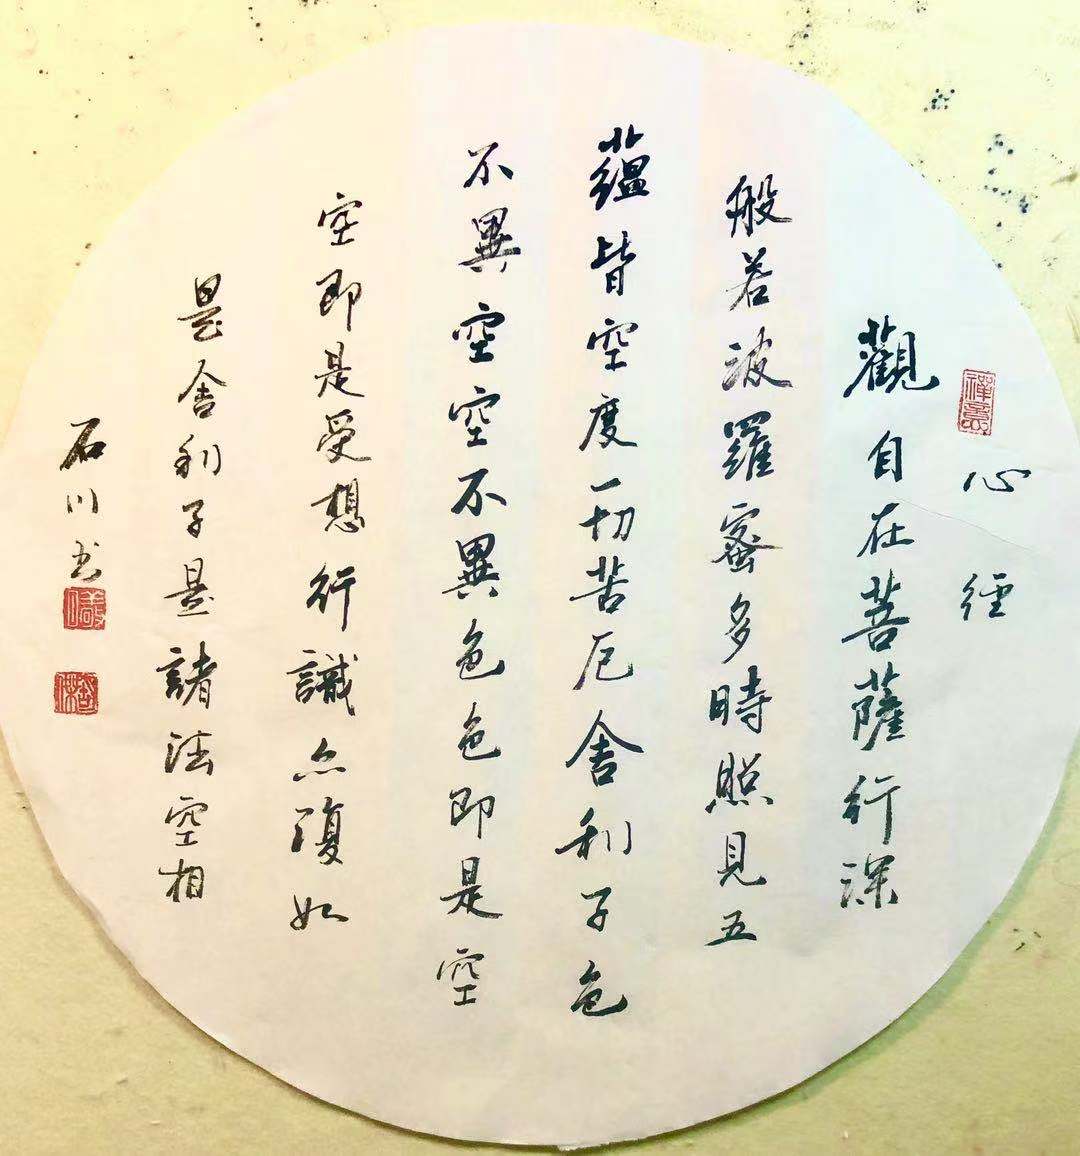 心經
觀自在菩薩行深
般若波羅蜜多時照見五
蘊皆空度一切苦厄舍利子色
不異空空不異色色即是空
空即是受想行識亦復如
是舍利子是諸法空相
石川书